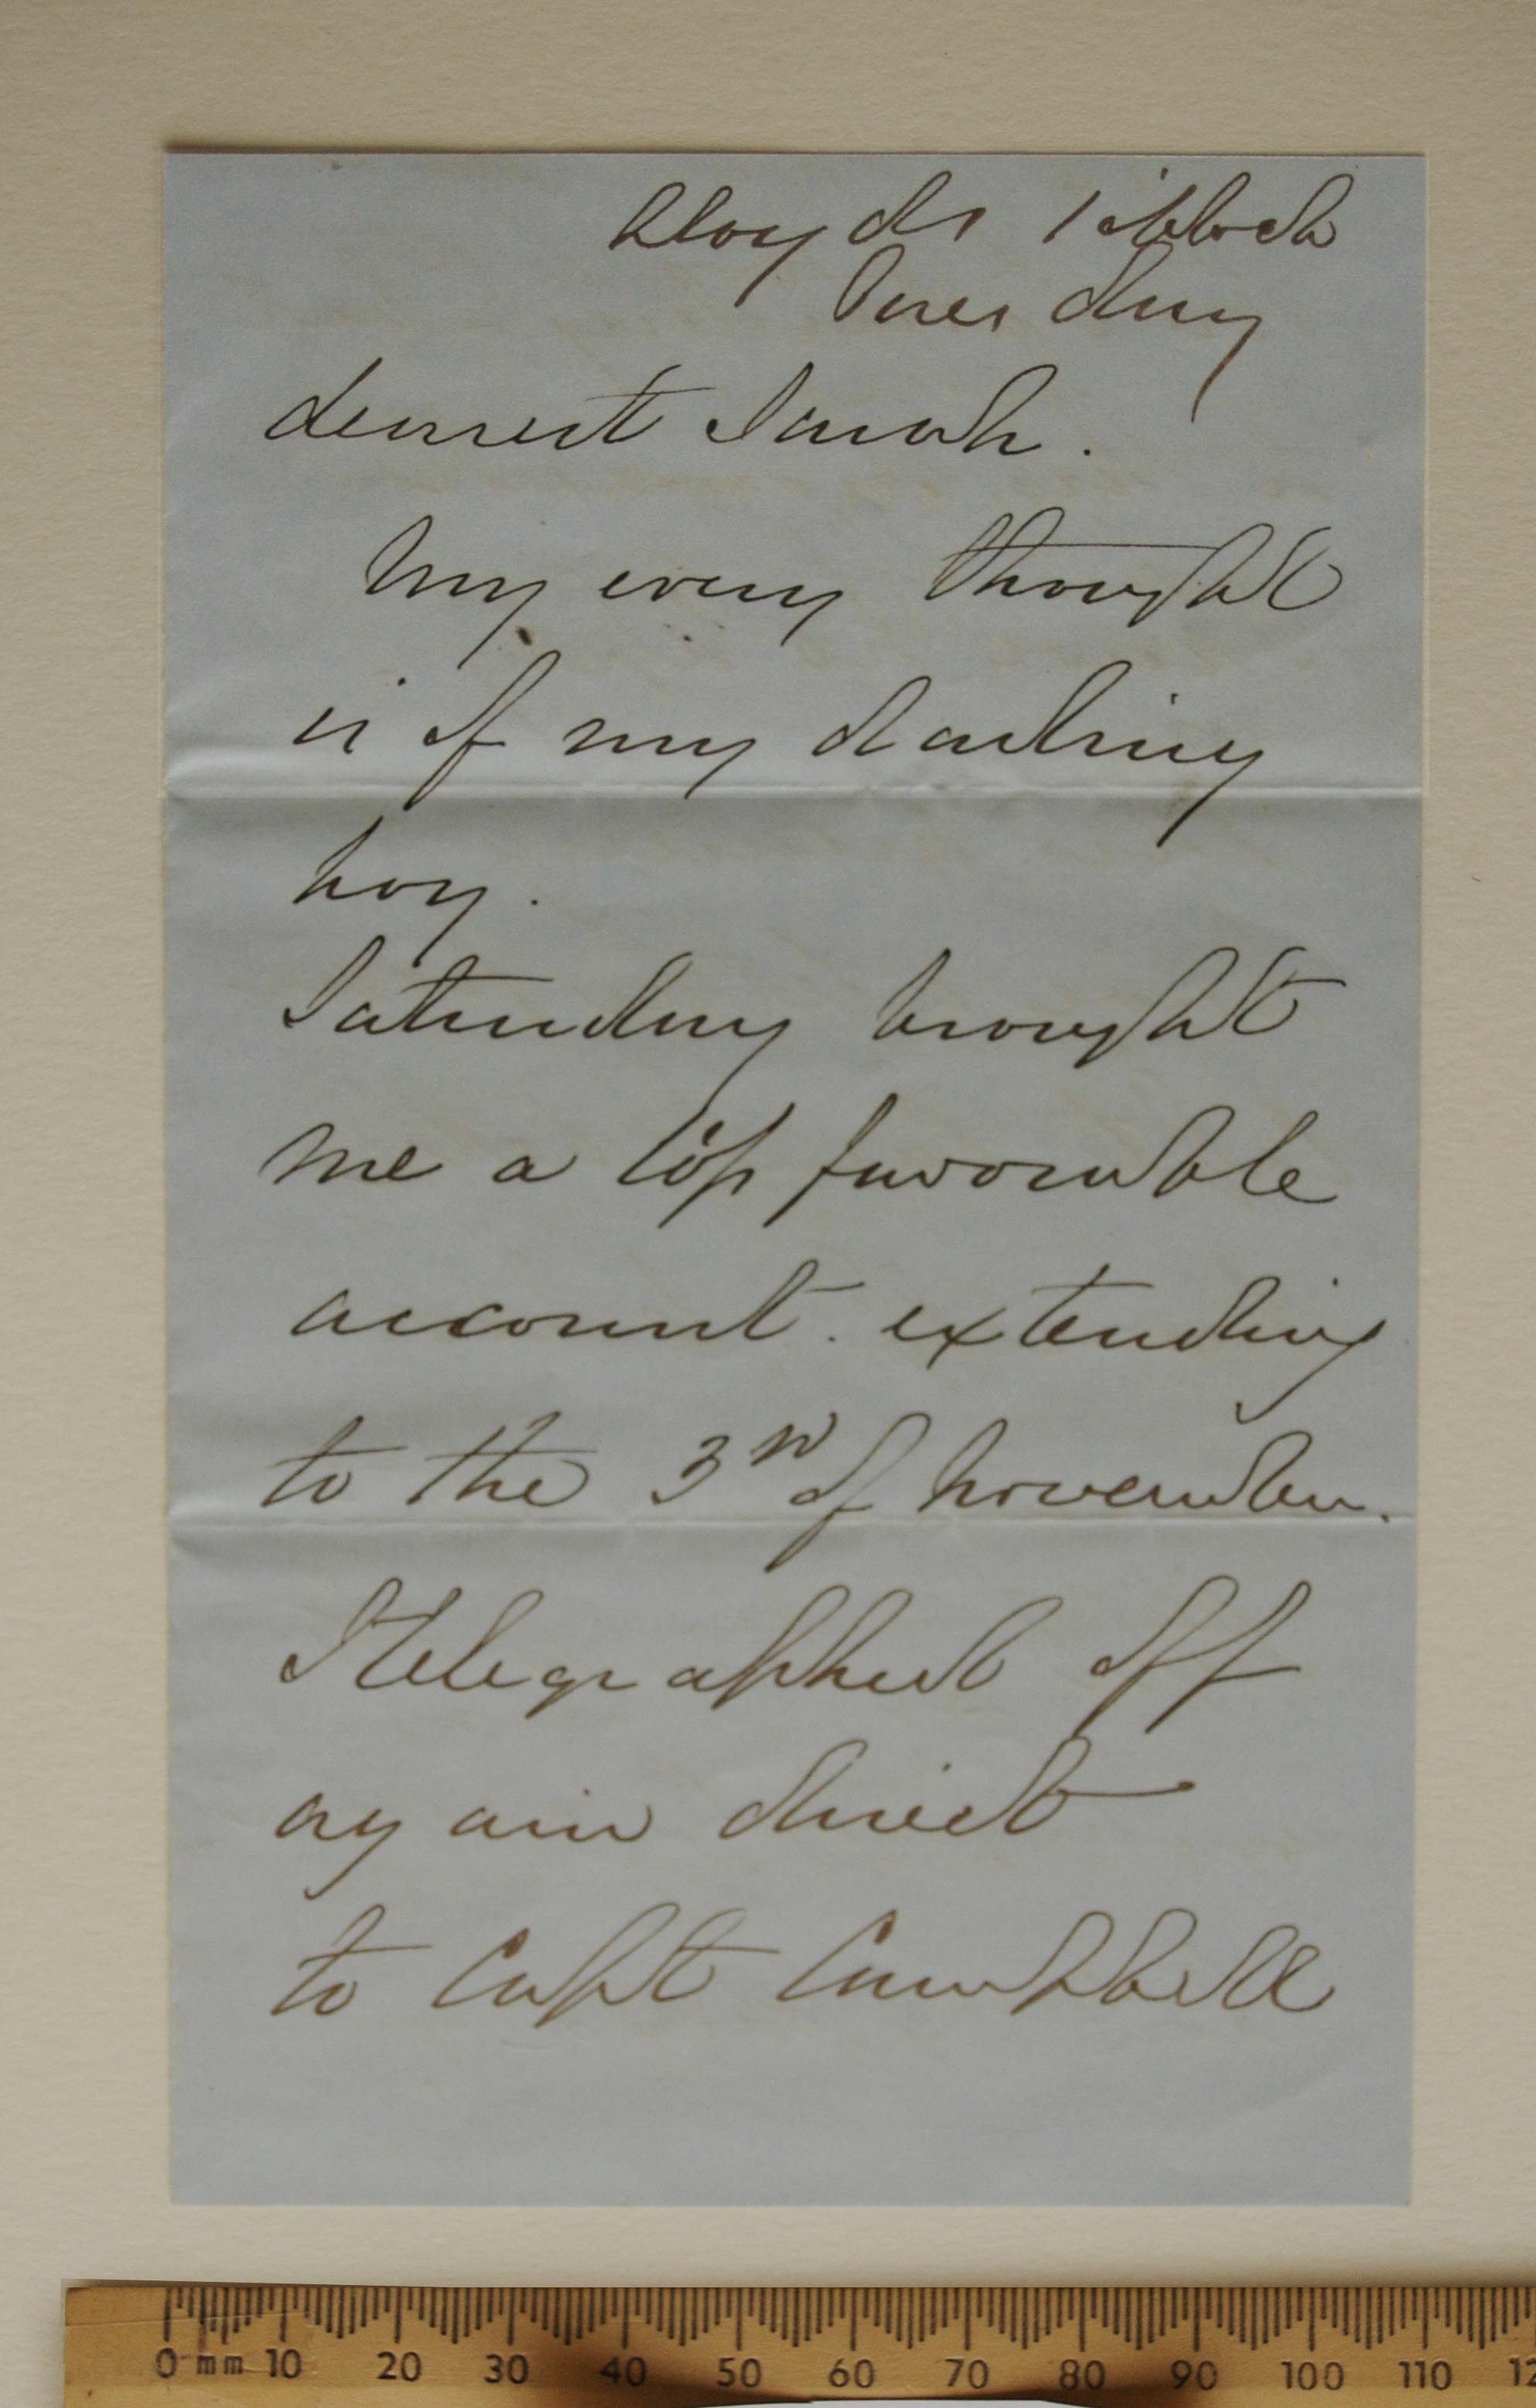 Lloyds 1 oblock
Tuesday
dearest Sarah.
My every thought
is of my darling
boy.
Saturday brought
me a favourable
account. extending
to the 3rd of November.
I telegraphed off
again direct
to Capt Campbell
0 mm 10 20 30 40 50 60 70 80 90 100 110 12